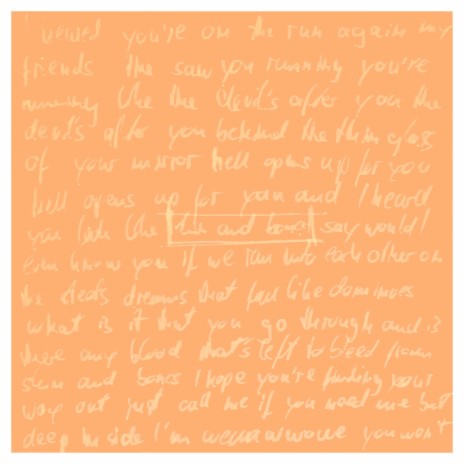 I you're on the run again my
friends saw you running you're
running like the devil's after you the
devil's after you behind the thin glass
of your mirror hell opens up for you
hell opens up for you and I heard
you look like skin and bones say would I
even know you if we ran into each other on
the streets dreams that fall like dominoes
what is it that you go through and is
there any blood that's left to bleed from
skin and bones I hope you're finding your
way out just call me if you need me but
deep inside I'm you won't